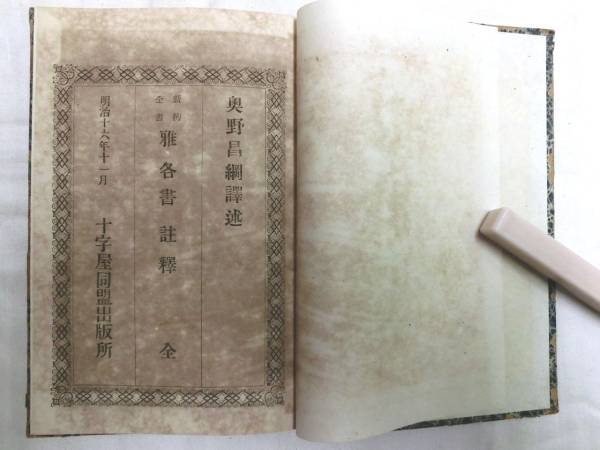 奥野昌綱譯述
新約全書
雅各書註釋 全
明治十六年十一月
十字屋同盟出版所